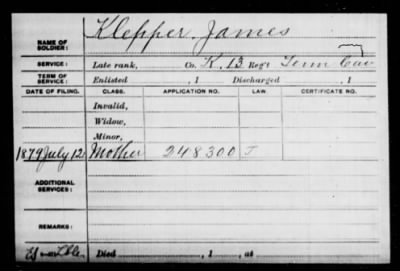 NAME OF SOLDIER: Klepper, James
SERVICE: Late rank, Co. K, 13 Reg't Tenn Cav
TERM OF SERVICE: Enlisted , 1 Discharged , 1
DATE OF FILING. CLASS. APPLICATION NO. LAW. CERTIFICATE NO.
Invalid,
Widow,
Minor,
1879 July 12 Mother 248300 J
ADDITIONAL SERVICES:
REMARKS:
Died , 1 , at